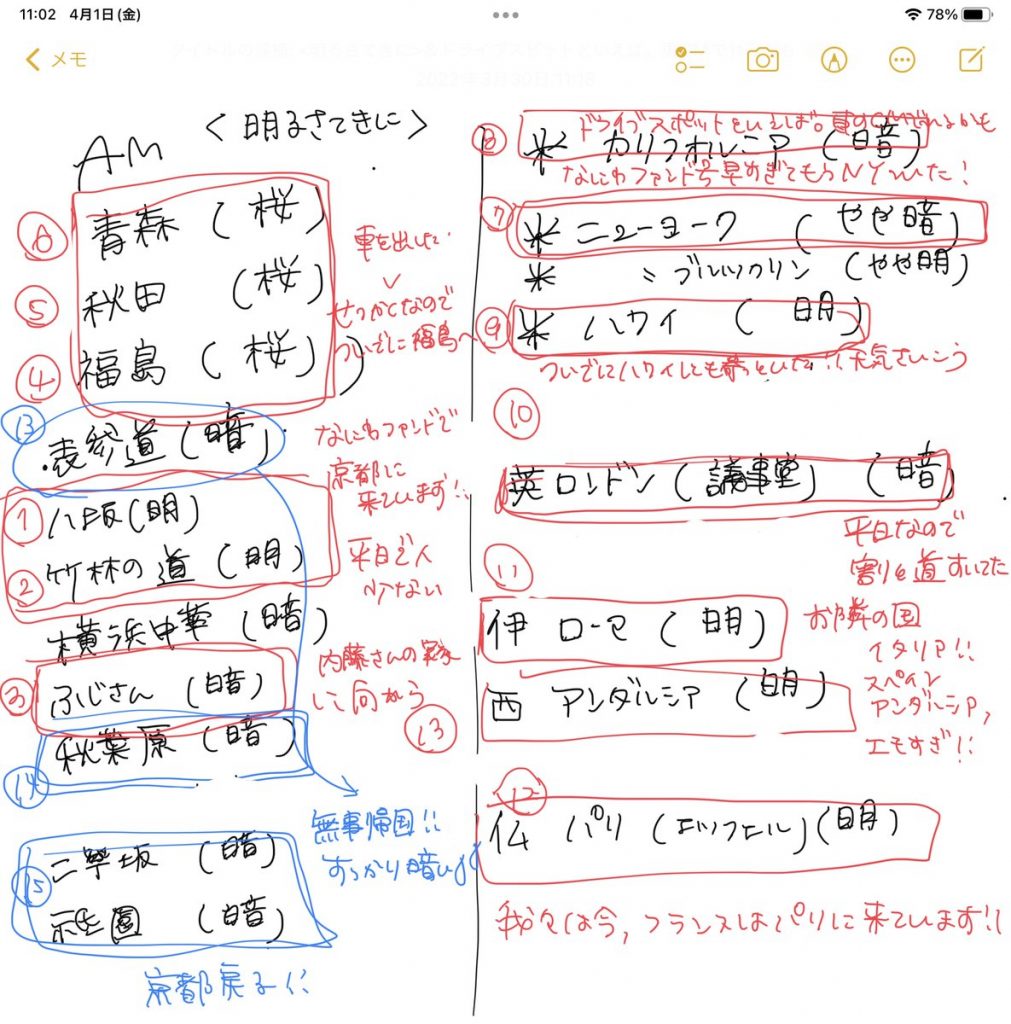 11:02 4月1日(金)
78%
メモ
2022年3月30日 11:18
<明るさてきに>
AM
⑥ 青森 (桜)
⑤ 秋田 (桜)
④ 福島 (桜)
車を出したい
せっかくなので
ついでに福島へ
⑬ 表参道(暗)
なにわファンドで
京都に
来ています!!
① 八坂(明)
② 竹林の道 (明)
平日で人
少ない
横浜中華 (暗)
③ ふじさん (暗)
内藤さんの
に向かう
⑭ 秋葉原 (暗)
無事帰国!!
すっかり暗い
⑮ 二寧坂 (暗)
祇園 (暗)
京都戻る!!
ドライブスポットといえば。
⑧ 米 カリフォルニア (暗)
なにわファンド号早すぎてもうNYついた!
⑦ 米 ニューヨーク (やや暗)
米 〃 ブルックリン (やや明)
⑨ 米 ハワイ (明)
ついでにハワイにも寄っといた!! 天気さいこう
⑩
英 ロンドン (議事堂) (暗)
平日なので
割と道すいてた
⑪
伊 ローマ (明)
お隣の国
イタリア!!
⑬ 西 アンダルシア (明)
スペイン
アンダルシア,
エモすぎ!!
⑫
仏 パリ (エッフェル)(明)
我々は今,フランスはパリに来ています!!